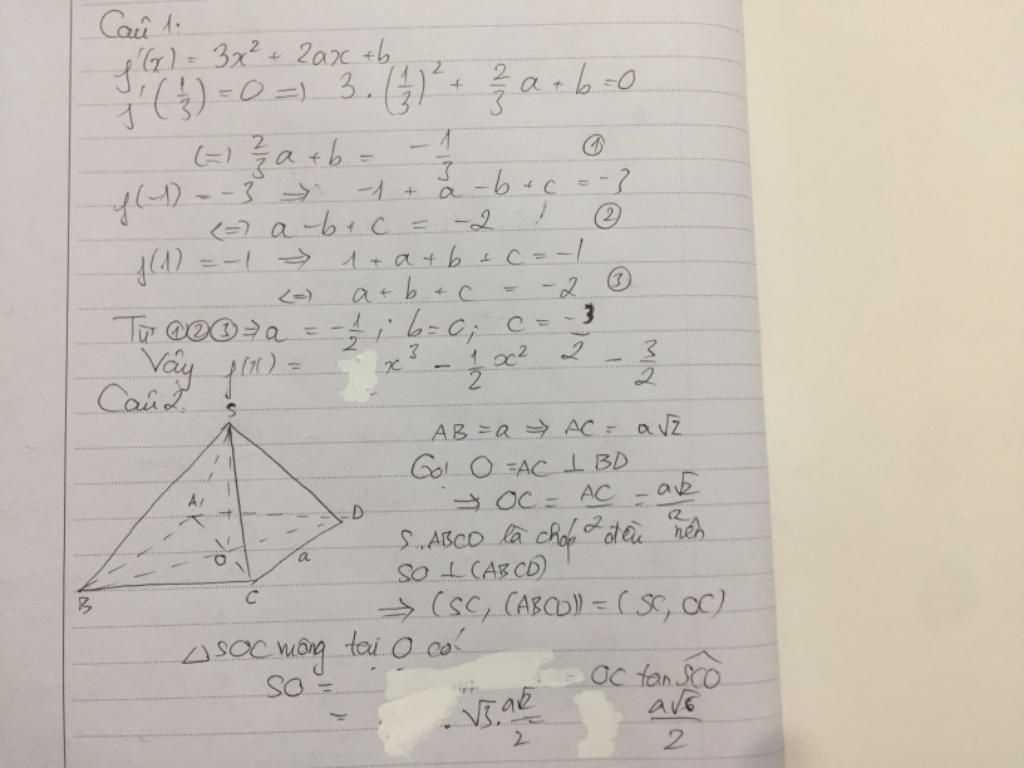 Câu 1:
f'(x) = 3x² + 2ax + b
f'(1/3) = 0 => 3.(1/3)² + 2/3 a + b = 0
<=> 2/3 a + b = -1/3 ①
f(-1) = -3 => -1 + a - b + c = -3
<=> a - b + c = -2 ②
f(1) = -1 => 1 + a + b + c = -1
<=> a + b + c = -2 ③
Từ ①②③ => a = -1/2; b = c; c = -3/2
Vậy f(x) = x³ - 1/2 x² - 3/2
Câu 2.
S
A
D
O
a
B
C
AB = a => AC = a√2
Gọi O = AC ⊥ BD
=> OC = AC/2 = a√2/2
S.ABCD là chóp đều nên
SO ⊥ (ABCD)
=> (SC, (ABCD)) = (SC, OC)
△SOC vuông tại O có:
SO = = OC tan SCO
= . √3. a√2/2 a√6/2